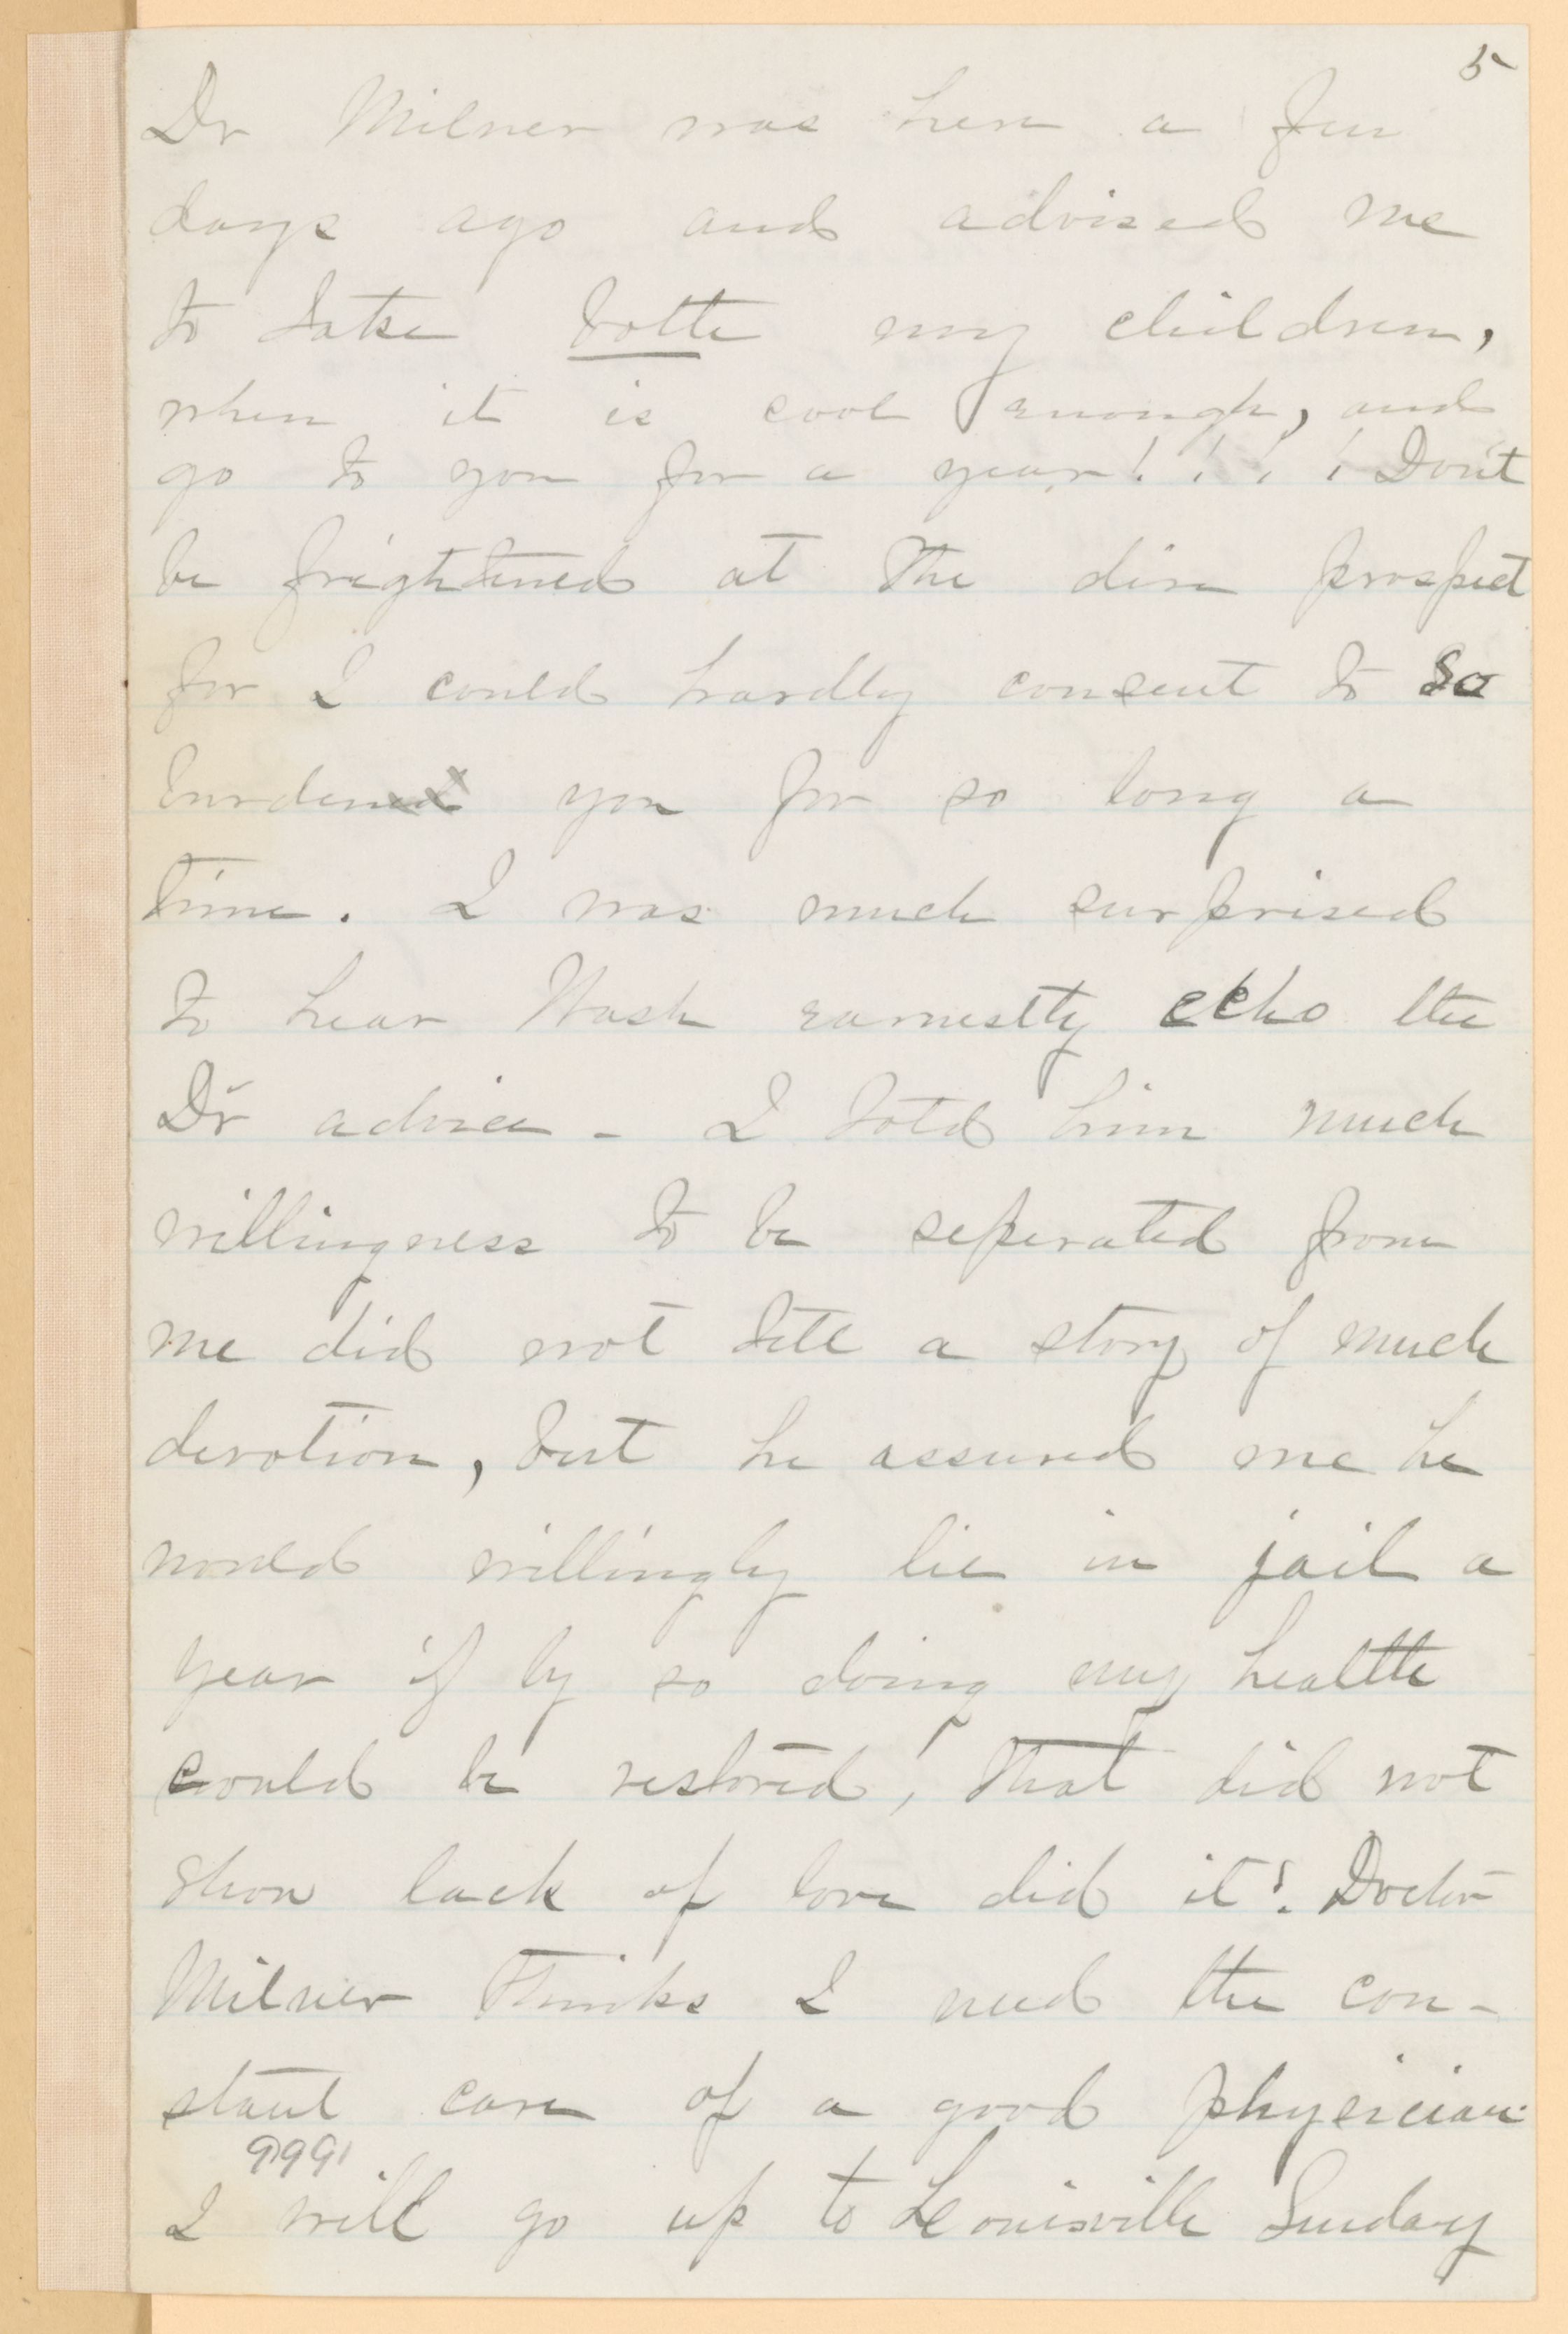 5
Dr Milner was here a few
days ago and advised me
to take both my children,
when it is cool enough, and
go to you for a year! ! ! ! Don't
be frightened at the dire prospect
for I could hardly consent to so
burden you for so long a
time. I was much surprised
to hear Wash earnestly echo the
Dr advice - I told him much
willingness to be seperated from
me did not tell a story of much
devotion, but he assured me he
would willingly lie in jail a
year if by so doing my health
could be restored, that did not
show lack of love did it? Doctor
Milner thinks I need the con-
stant care of a good physician
9991
I will go up to Louisville Sunday